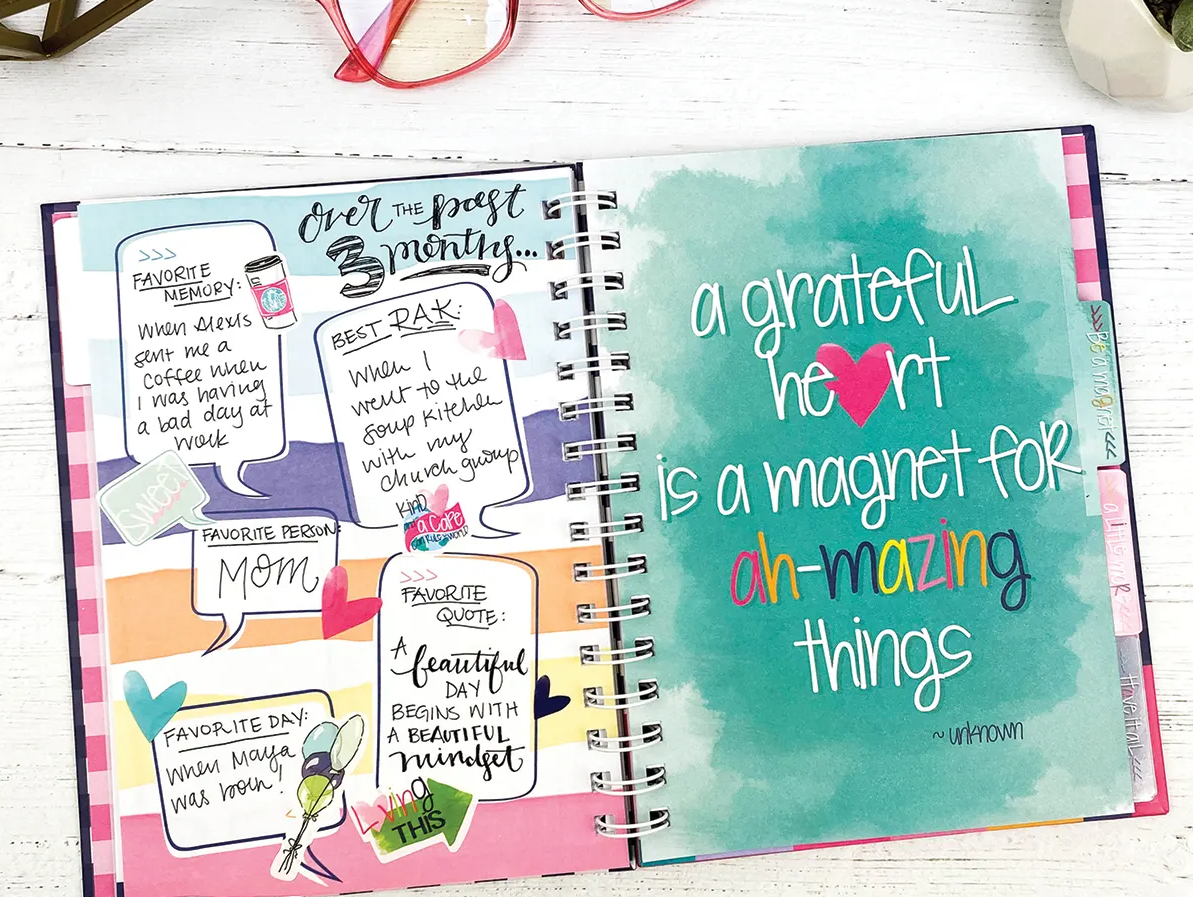 over THE past
3 months...
>>>
FAVORITE
MEMORY:
when Alexis
sent me a
coffee when
I was having
a bad day at
work
BEST RAK:
when I
went to the
soup kitchen
with my
church group
SWEET
KIND
a CAPE
FAVORITE PERSON:
MOM
>>>
FAVORITE
QUOTE:
A
beautiful
DAY
BEGINS WITH
A BEAUTIFUL
mindset
FAVORITE DAY:
when Maya
was born!
Loving
THIS
a grateful
heart
is a magnet for
ah-mazing
things
~ unknown
>>> Be a magnet <<<
a little